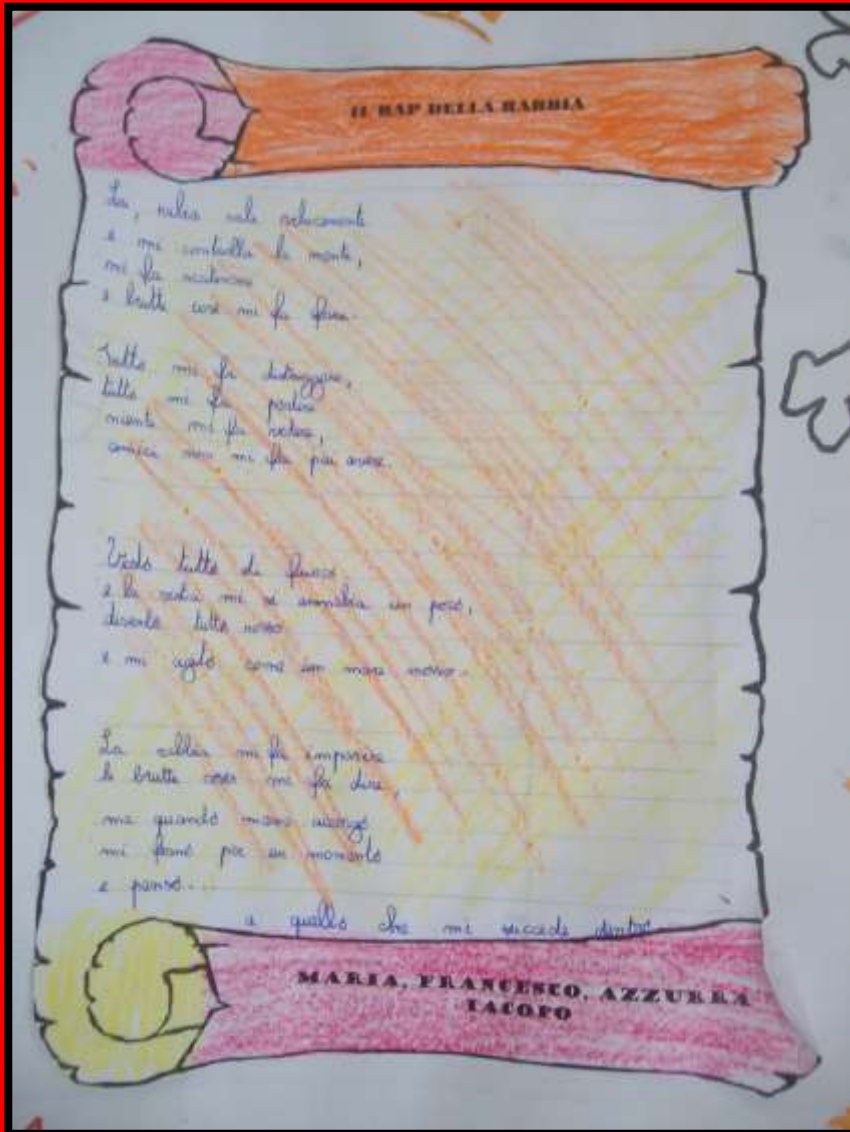 IL RAP DELLA RABBIA
La, rabbia sale velocemente
e mi controlla la mente,
mi fa
e brutte cose mi fa fare.
Tutto mi fa distruggere,
tutto mi fa perdere
niente mi fa vedere,
amici non mi fa più avere.
Vedo tutto di fuoco
e la vista mi si annebia un poco,
divento tutto rosso
e mi agito come un mare mosso.
La rabbia mi fa
le brutte cose mi fa dire,
ma quando
mi fermo per un momento
e penso....
a quello che mi succede dentro
MARIA, FRANCESCO, AZZURRA
IACOPO